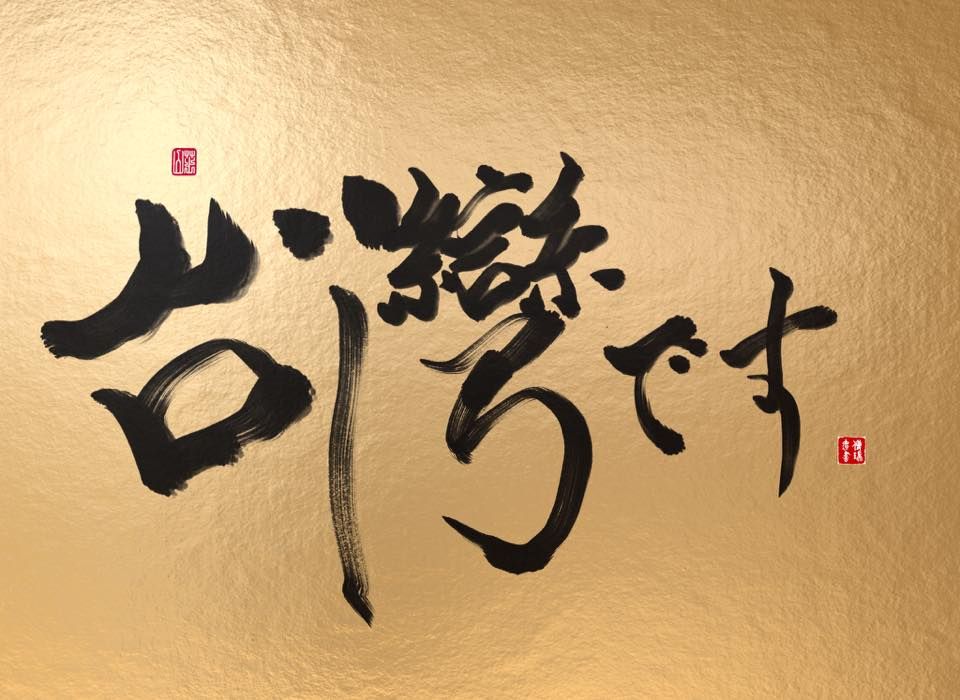 台灣です